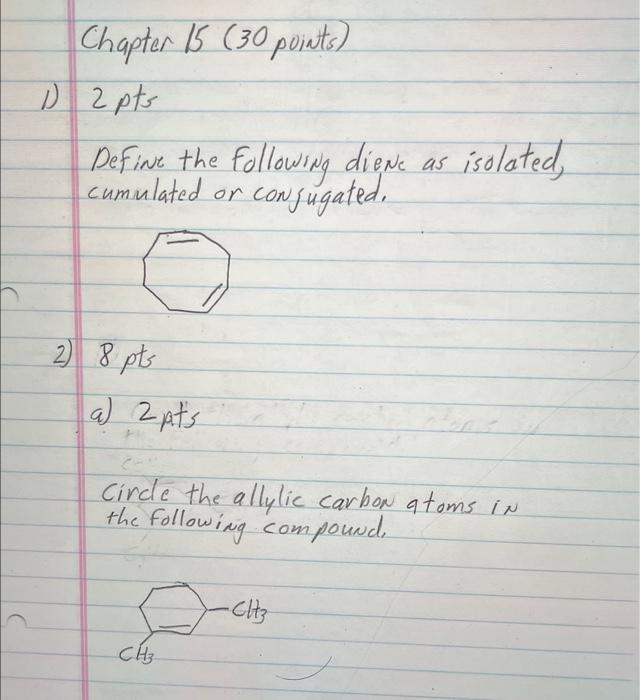 Chapter 15 (30 points)
1) 2 pts
Define the following diene as isolated,
cumulated or conjugated.
2) 8 pts
a) 2 pts
Circle the allylic carbon atoms in
the following compound.
CH3
CH3